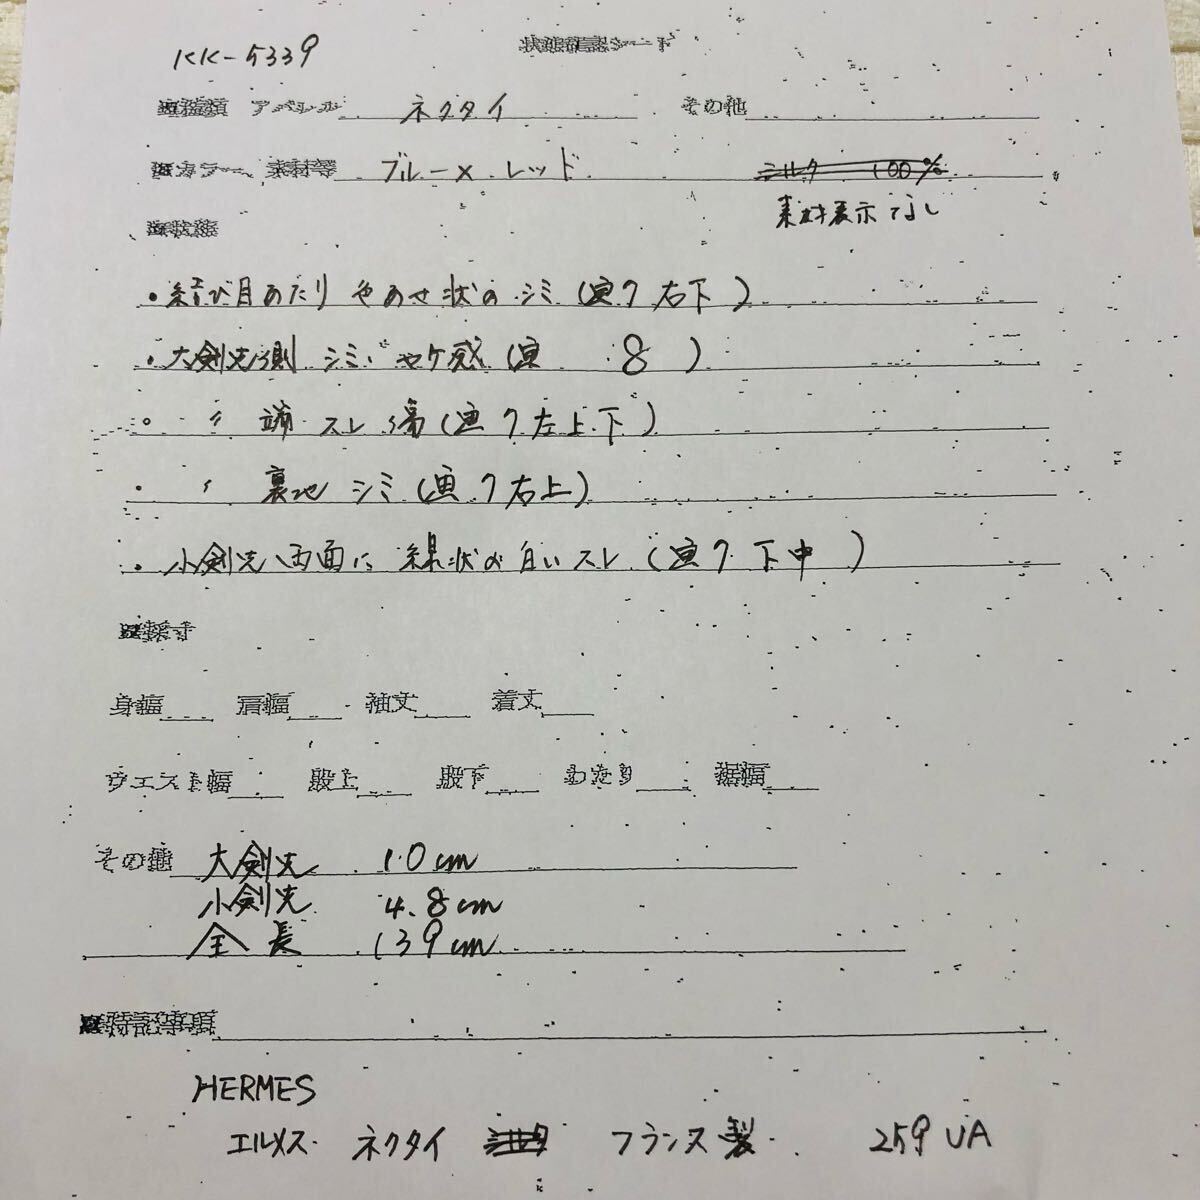 KK-5339
状態確認シート
■種類 アパレル ネクタイ その他
■カラー、素材等 ブルー× レッド シルク 100%
素材表示なし
■状態
・結び目あたり 色あせ状のシミ (画7 右下)
・大剣先側 シミ、ヤケ感 (画 8)
・ 〃 端 スレ傷 (画7 左上、下)
・ 〃 裏地 シミ (画7 右上)
・小剣先 両面に 線状の白いスレ (画7 下中)
■採寸
身幅 肩幅 袖丈 着丈
ウエスト幅 股上 股下 わたり 裾幅
その他 大剣先 10cm
小剣先 4.8cm
全長 139cm
■特記事項
HERMES
エルメス ネクタイ シルク フランス製 259 UA